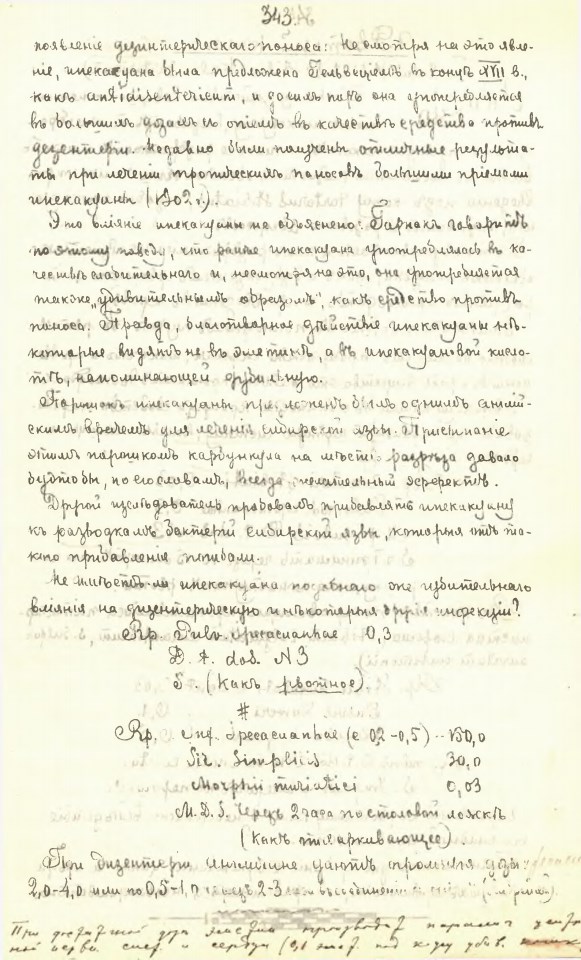 343.
появленіе дезинтерическаго поноса: Несмотря на это явле-
ніе, ипекакуана была предложена Гельвецiемъ въ концѣ XVII в.,
какъ antidisentericum, и до сихъ поръ она употребляется
въ большихъ дозахъ съ опіемъ въ качествѣ средства противъ
дезентеріи. Недавно были получены отличные результа-
ты при леченіи тропическихъ поносовъ большими пріемами
ипекакуаны
Это вліяніе ипекакуаны не объяснено: Гарнакъ говоритъ
по этому поводу, что раньше ипекакуана употреблялась въ ка-
чествѣ слабительнаго и, несмотря на это, она употребляется
также „удивительнымъ образомъ", какъ средство противъ
поноса. Правда, благотворное дѣйствіе ипекакуаны нѣ-
которые видятъ не въ эметинѣ, а въ ипекакуановой кисло-
тѣ, напоминающей дубильную.
Порошокъ ипекакуаны предложенъ былъ однимъ англій-
скимъ врачемъ для леченія сибирской язвы. Присыпаніе
этимъ порошкомъ карбункула на мѣстѣ разрѣза давало
будто бы, по его словамъ, всегда желательный эффектъ.
Другой изслѣдователь пробовалъ прибавлять ипекакуану
къ разводкамъ бактерій сибирской язвы, которыя отъ та-
кого прибавленія погибали.
Не имѣетъ ли ипекакуана подобнаго же губительнаго
вліянія на дизентерическую и нѣкоторыя другія инфекціи?
Rp. Pulv. Ipecacuanhae 0,3
D. t. dos. N 3
S. (Какъ рвотное).
#
Rp. Inf. Ipecacuanhae (e 0,2-0,5) -- 150,0
Sir. Simplicis 30,0
Morphii muriatici 0,03
M. D. S. Черезъ 2 часа по столовой ложкѣ
(Какъ отхаркивающее).
При дизентеріи даютъ громадныя дозы:
2,0-4,0 или по 0,5-1,0 2-3
При производ